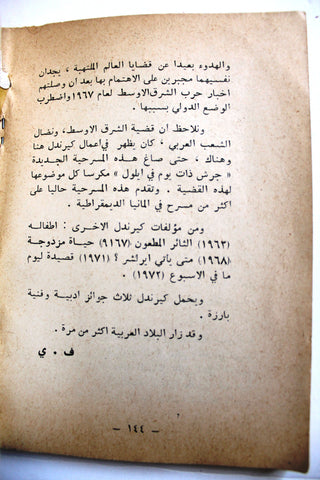 والهدوء بعيدا عن قضايا العالم الملتهبة ، يجدان
نفسيهما مجبرين على الاهتمام بها بعد ان وصلتهم
اخبار حرب الشرق الاوسط لعام ١٩٦٧ واضطرب
الوضع الدولي بسببها .
ونلاحظ ان قضية الشرق الاوسط، ونضال
الشعب العربي ، كان يظهر في اعمال كيرندل هنا
وهناك ، حتى صاغ هذه المسرحية الجديدة
« جرش ذات يوم في ايلول » مكرسا كل موضوعها
لهذه القضية . وتقدم هذه المسرحية حاليا على
اكثر من مسرح في المانيا الديمقراطية .
ومن مؤلفات كيرندل الاخرى : اطفاله
(١٩٦٣) الثائر المطعون (٩١٦٧) حياة مزدوجة
(١٩٦٨) متى ياتي ايرلشر ؟ (١٩٧١) قصيدة ليوم
ما في الاسبوع (١٩٧٢) .
ويحمل كيرندل ثلاث جوائز ادبية وفنية
بارزة .
وقد زار البلاد العربية اكثر من مرة .
ف . ي
– ١٤٤ –